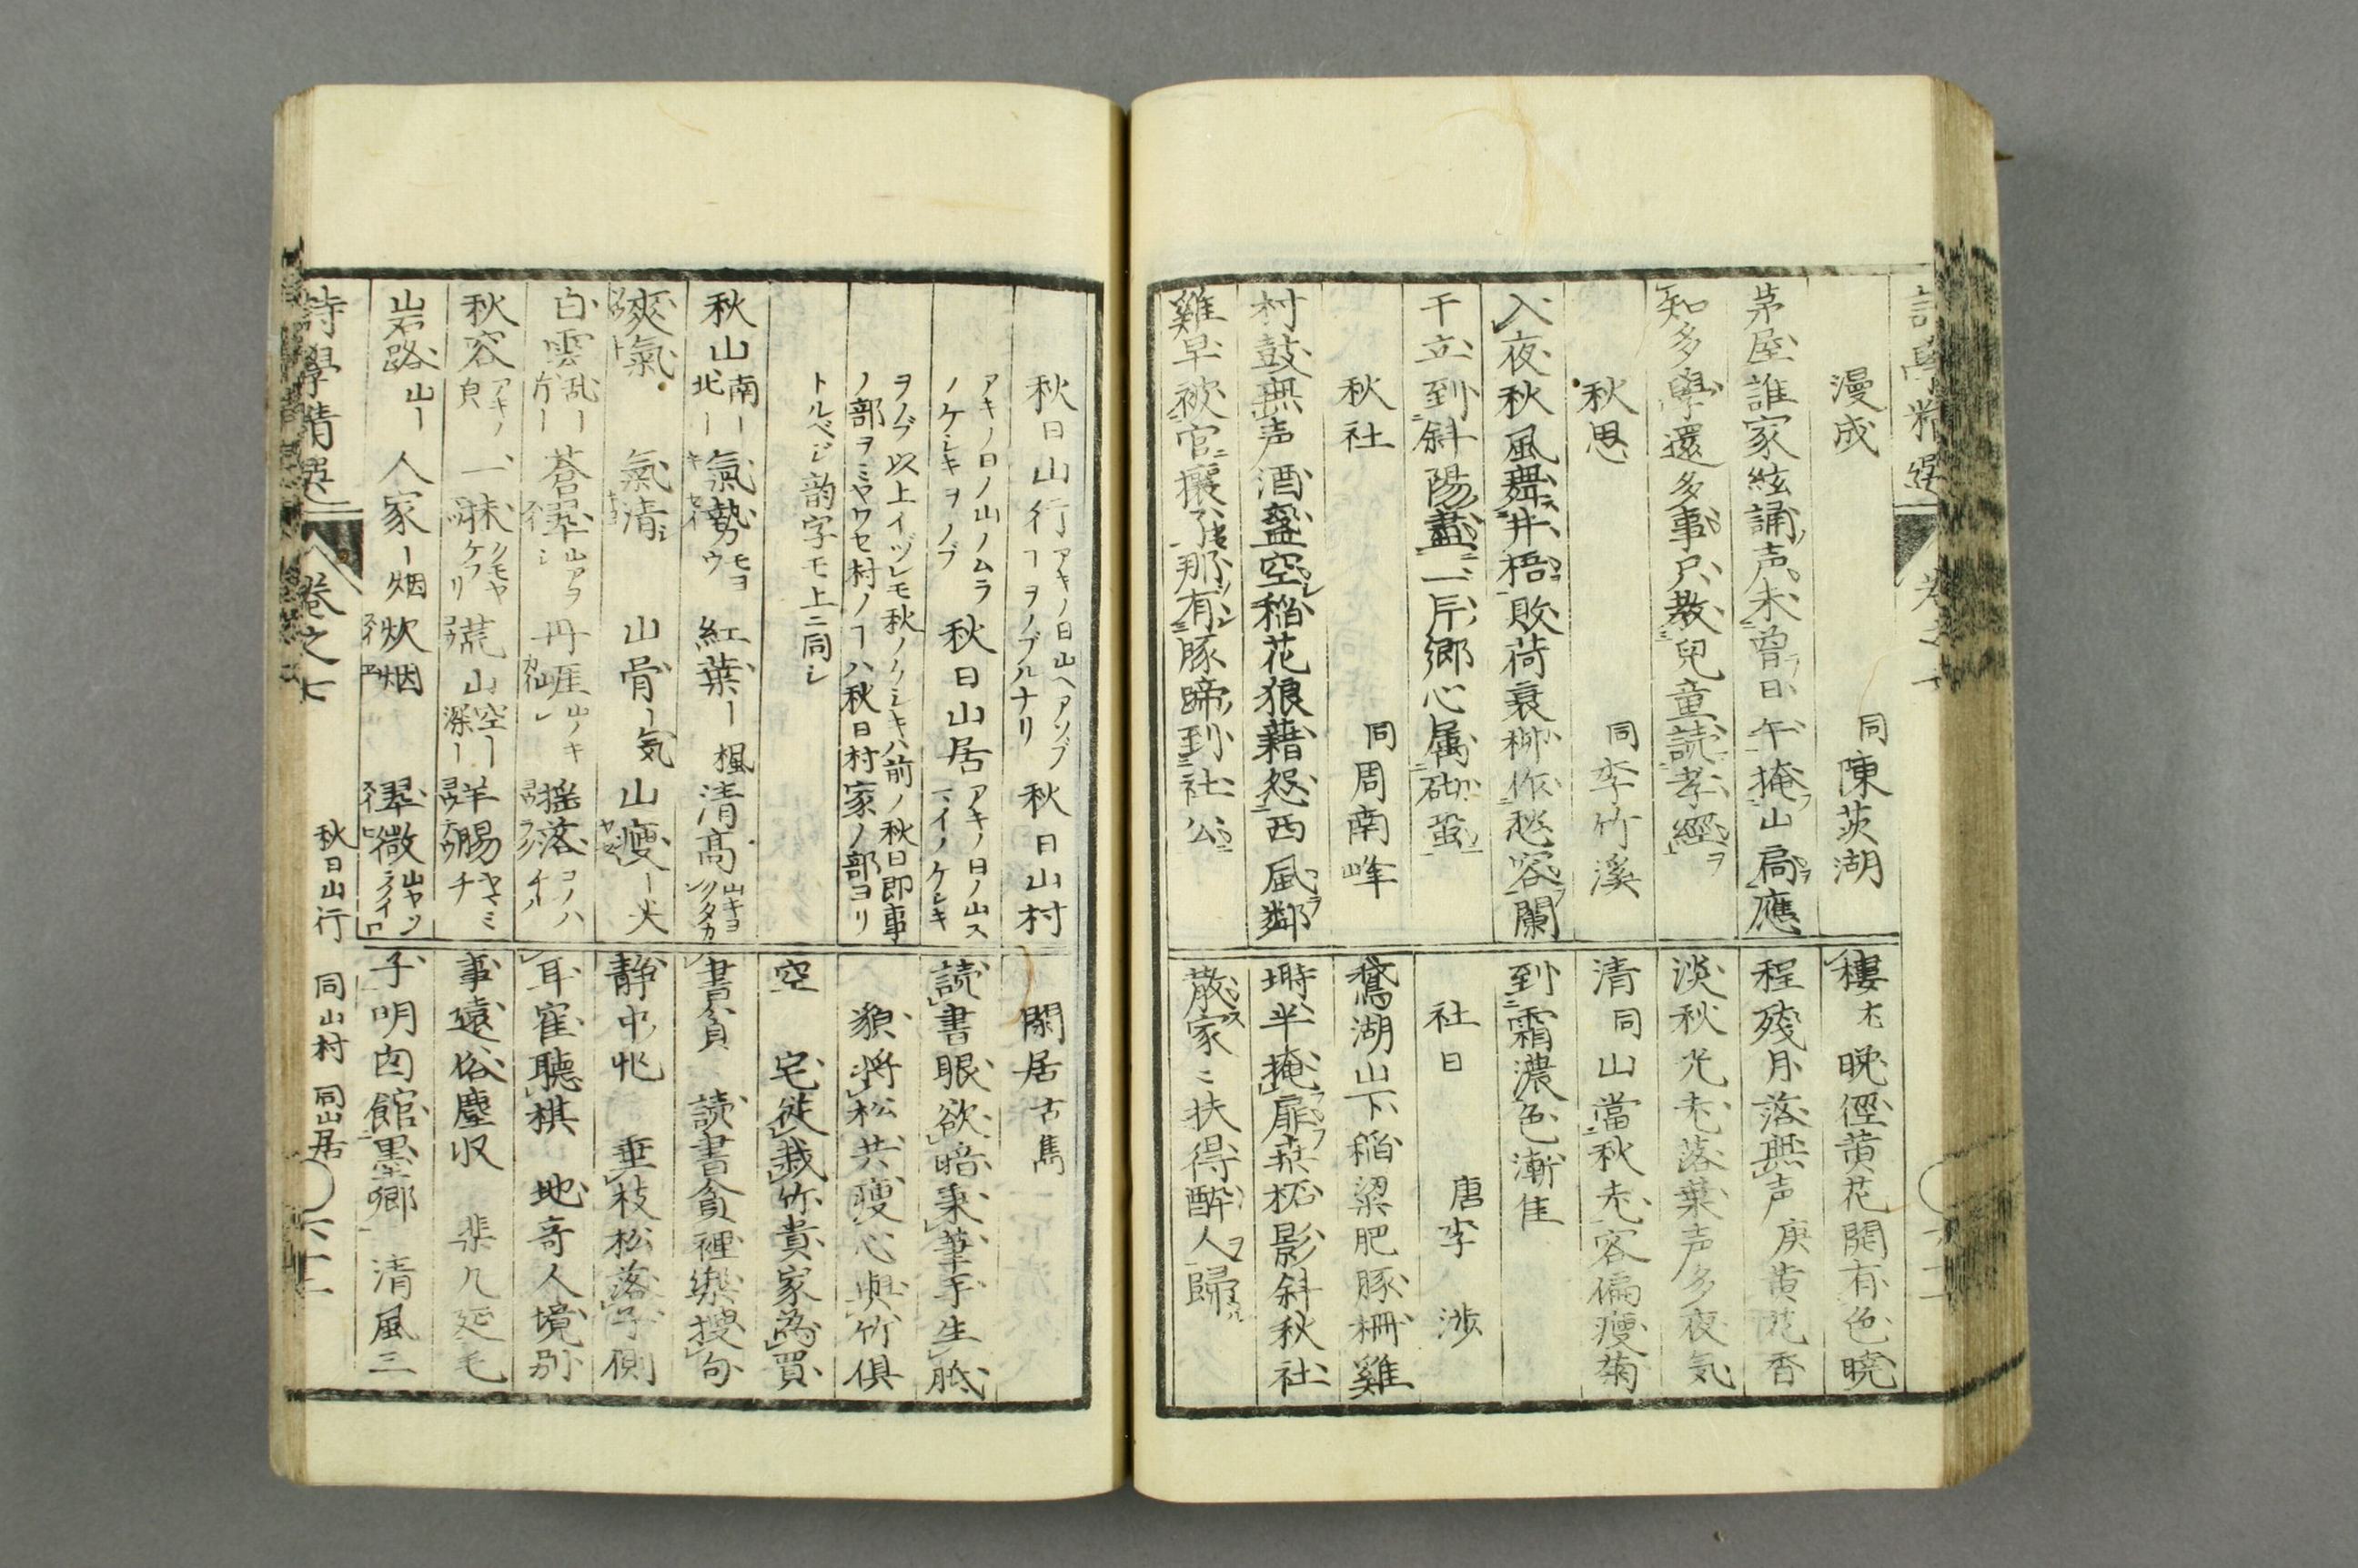 漫成　同陳茨湖
茅屋誰家絃誦声未曽日午掩山扃應
知多學還多事只教兒童読孝經
秋思　同李竹溪
入夜秋風舞井梧敗荷衰柳作愁容闌
干立到斜陽盡一片郷心属砌蛩
秋社　同周南峰
村鼓無声酒盞空稲花狼藉怨西風鄰
雞早被官攘那有豚蹄到社公
晩徑黄花開有色暁
程残月落無声　庚黄花香
淡秋光老落葉声多夜気
清　同山當秋老容偏痩菊
到霜濃色漸佳
社日　唐李渉
鵞湖山下稲粱肥豚柵雞
塒半掩扉桑柘影斜秋社
散家〻扶得酔人歸
秋日山行　アキノ日山ヘアソブヿヲノブルナリ　秋日山村
アキノ日ノ山ノムラノケシキヲノブ　秋日山居　アキノ日ノ山スマイノケシキ
ヲノブ以上イヅレモ秋ノケシキハ前ノ秋日即事
ノ部ヲミヤワセ村ノヿハ秋日村家ノ部ヨリ
トルベシ韵字モ上ニ同シ
秋山　南ー北ー　氣勢　紅葉　ー楓　清髙
爽氣　氣清　山骨　ー気　山痩
白雲　乱ー片ー　蒼翠　丹崖　揺落
秋容　一抹　荒山　空ー深ー　羊腸
岩路　山ー　人家　ー烟　炊烟　翠微
閑居
読書眼欲暗秉筆手生胝
貌將松共痩心與竹俱
空　宅徙栽竹貴家為買
書貧　読書貧裡樂搜句
静中忙　垂枝松落子側
耳寉聽棋　地奇人境别
事遠俗塵収　棐几延毛
子明囱館墨卿　清風三
詩學精選　卷之七　秋日山行　同山村　同山居　六十二